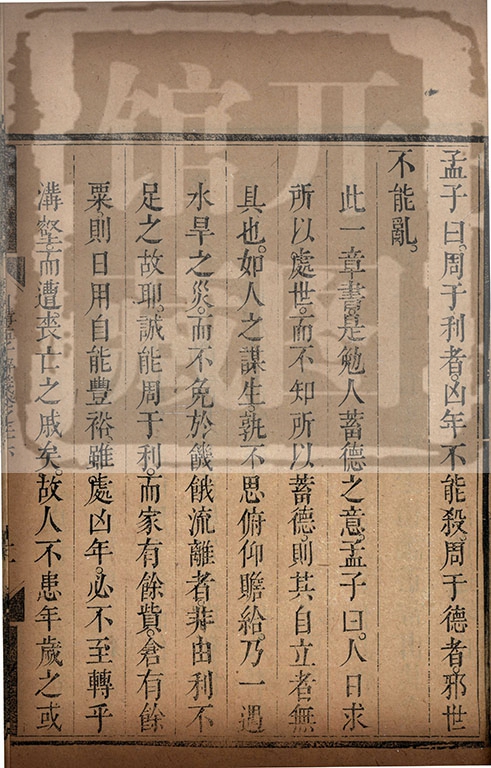 孟子曰。周于利者。凶年不能殺。周于德者。邪世
不能亂。
此一章書。是勉人蓄德之意。孟子曰。人日求
所以處世。而不知所以蓄德。則其自立者無
具也。如人之謀生。孰不思俯仰贍給。乃一遇
水旱之災。而不免於饑餓流離者。非由利不
足之故耶。誠能周于利。而家有餘貲。倉有餘
粟。則日用自能豐裕。雖處凶年。必不至轉乎
溝壑。而遭喪亡之戚矣。故人不患年歲之或